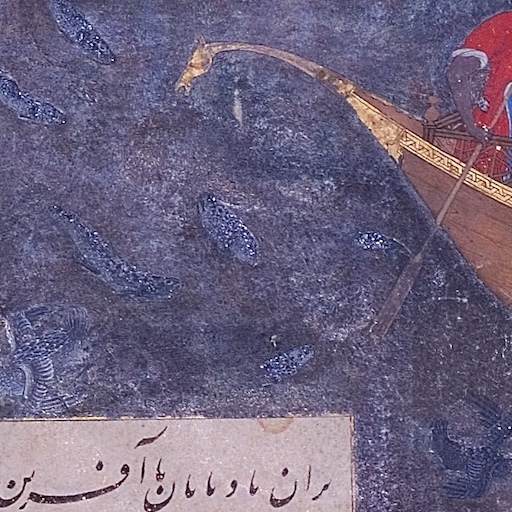 بران بادبانان با آفرین